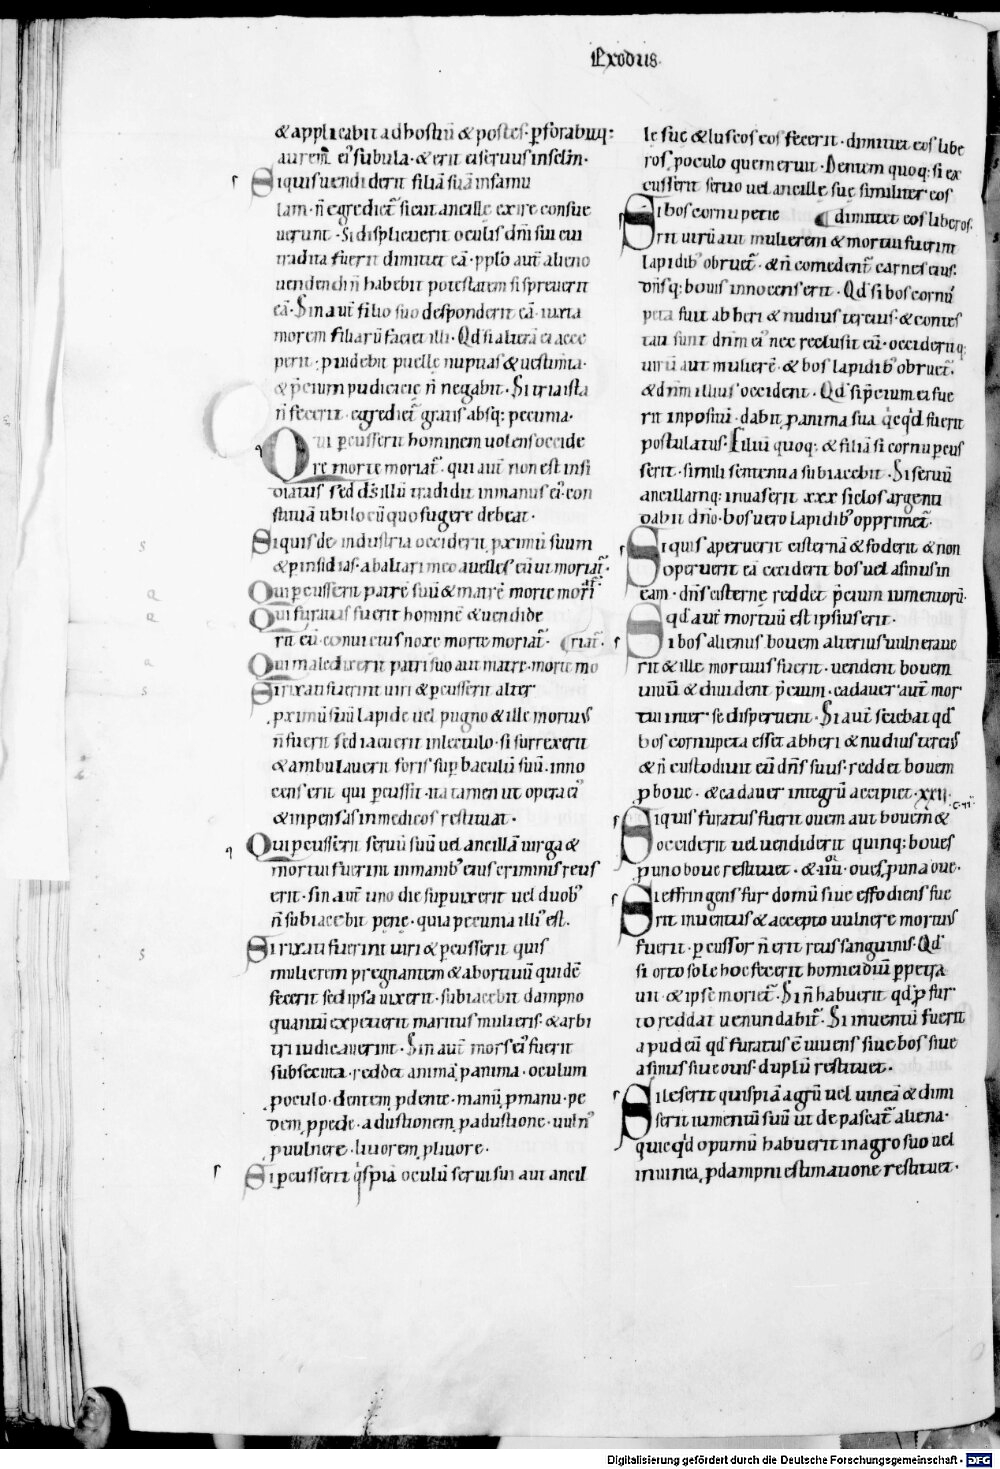 Exodus
& applicabit ad hostiū & postes· ꝑforabitq:
aurem ei' subula· & erit ei seruus in sclm̄·
Siquis uendiderit filiā suā in famu
lam· n̄ egrediet᷑ sicut ancille exire consue
uerunt· Si displicuerit oculis dn̄i sui cui
tradita fuerit dimittet eā· pplo aut̄ alieno
uendendi n̄ habebit potestatem si spreuerit
eā· Sin aut̄ filio suo desponderit eā· iuxta
morem filiarū faciet illi· Qd si alterā ei acce
perit· puidebit puelle nuptias & uestim̄ta·
& p̄cium pudicicie n̄ negabit· Si tria ista
n̄ fecerit· egrediet᷑ gratis absq: pecunia·
Qui ꝑcusserit hominem uolens occide
re morte moriat᷑· qui aut̄ non est insi
diatus sed d̄s illū tradidit in manus ei' con
stituā tibi locū quo fugere debeat·
Siquis de industria occiderit ꝓximū suum
& ꝑ insidias· ab altari meo auelles eū ut moriat᷑·
Qui ꝑcusserit patrē suū & matrē morte mori
Qui furatus fuerit hominē & uendide
rit eū· conuictus noxe morte moriat᷑· riat᷑·
Qui maledixerit patri suo aut matre· morte mo
Si rixati fuerint uiri & ꝑcusserit alter
ꝓximū suū lapide uel pugno & ille mortuus
n̄ fuerit sed iacuerit in lectulo· si surrexerit
& ambulauerit foris suꝑ baculū suū· inno
cens erit qui ꝑcussit· ita tamen ut opera ei'
& inpensas in medicos restituat·
Qui ꝑcusserit seruū suū uel ancillā uirga &
mortui fuerint in manib' eius criminis reus
erit· sin aut̄ uno die suꝑuixerit uel duob'
n̄ subiacebit pene· quia pecunia illi' est·
Si rixati fuerint uiri & ꝑcusserit quis
mulierem pregnantem & abortiuū quidē
fecerit sed ipsa uixerit· subiacebit dampno
quantū expetierit maritus mulieris· & arbi
tri iudicauerint· Sin aut̄ mors ei' fuerit
subsecuta· reddet animā ꝓ anima· oculum
ꝓ oculo· dentem ꝓ dente· manū ꝓ manu· pe
dem ꝓ pede· adustionem ꝓ adustione· uuln'
ꝓ uulnere· liuorem ꝓ liuore·
Si ꝑcusserit q̇spiā oculū serui sui aut ancil
le sue & luscos eos fecerit· dimittet eos libe
ros ꝓ oculo quem eruit· Dentem quoq: si ex
cusserit seruo uel ancille sue similiter eos
Si bos cornu petie dimittet eos liberos·
rit uirū aut mulierem & mortui fuerint
lapidib' obruet᷑· & n̄ comedent᷑ carnes eius·
dn̄sq: bouis innocens erit· Qd si bos cornu
peta fuit ab heri & nudius tercius· & contes
tati sunt dn̄m ei' nec reclusit eū· occideritq:
uirū aut mulierē· & bos lapidib' obruet᷑·
& dn̄m illius occident· Qd si p̄cium ei fue
rit inpositū· dabit ꝓ anima sua q̇cq̇d fuerit
postulatus· Filiū quoq: & filiā si cornu ꝑcus
serit· simili sententia subiacebit· Si seruū
ancillamq: inuaserit xxx siclos argenti
dabit dn̄o· bos uero lapidib' opprimet᷑·
Siquis aperuerit cisternā & foderit & non
operuerit eā cecideritq bos uel asinus in
eam· dn̄s cisterne reddet p̄cium iumentorū·
qd aut̄ mortuū est ipsius erit·
Si bos alienus bouem alterius uulneraue
rit & ille mortuus fuerit· uendent bouem
uiuū & diuident p̄cium· cadauer aut̄ mor
tui inter se disperuent· Si aut̄ sciebat qd
bos cornupeta esset ab heri & nudius tercius
& n̄ custodiuit eū dn̄s suus· reddet bouem
ꝓ boue· & cadauer integrū accipiet· xxii·
Siquis furatus fuerit ouem aut bouem &
occiderit uel uendiderit quinq: boues
ꝓ uno boue restituet· & iiii· oues ꝓ una oue·
Si effringens fur domū siue effodiens fue
rit inuentus & accepto uulnere mortuus
fuerit· ꝑcussor n̄ erit reus sanguinis· Qd
si orto sole hoc fecerit homicidiū ꝑpetra
uit· & ipse moriet᷑· Si n̄ habuerit qd ꝓ fur
to reddat uenundabit᷑· Si inuentū fuerit
apud eū qd furatus ē uiuens siue bos siue
asinus siue ouis· duplū restituet·
Si leserit quispiā agrū uel uineā & dimi
serit iumentū suū ut depascat᷑ aliena·
quicq̇d optimū habuerit in agro suo uel
in uinea, ꝓ dampni estimatione restituet·
Digitalisierung gefördert durch die Deutsche Forschungsgemeinschaft - DFG